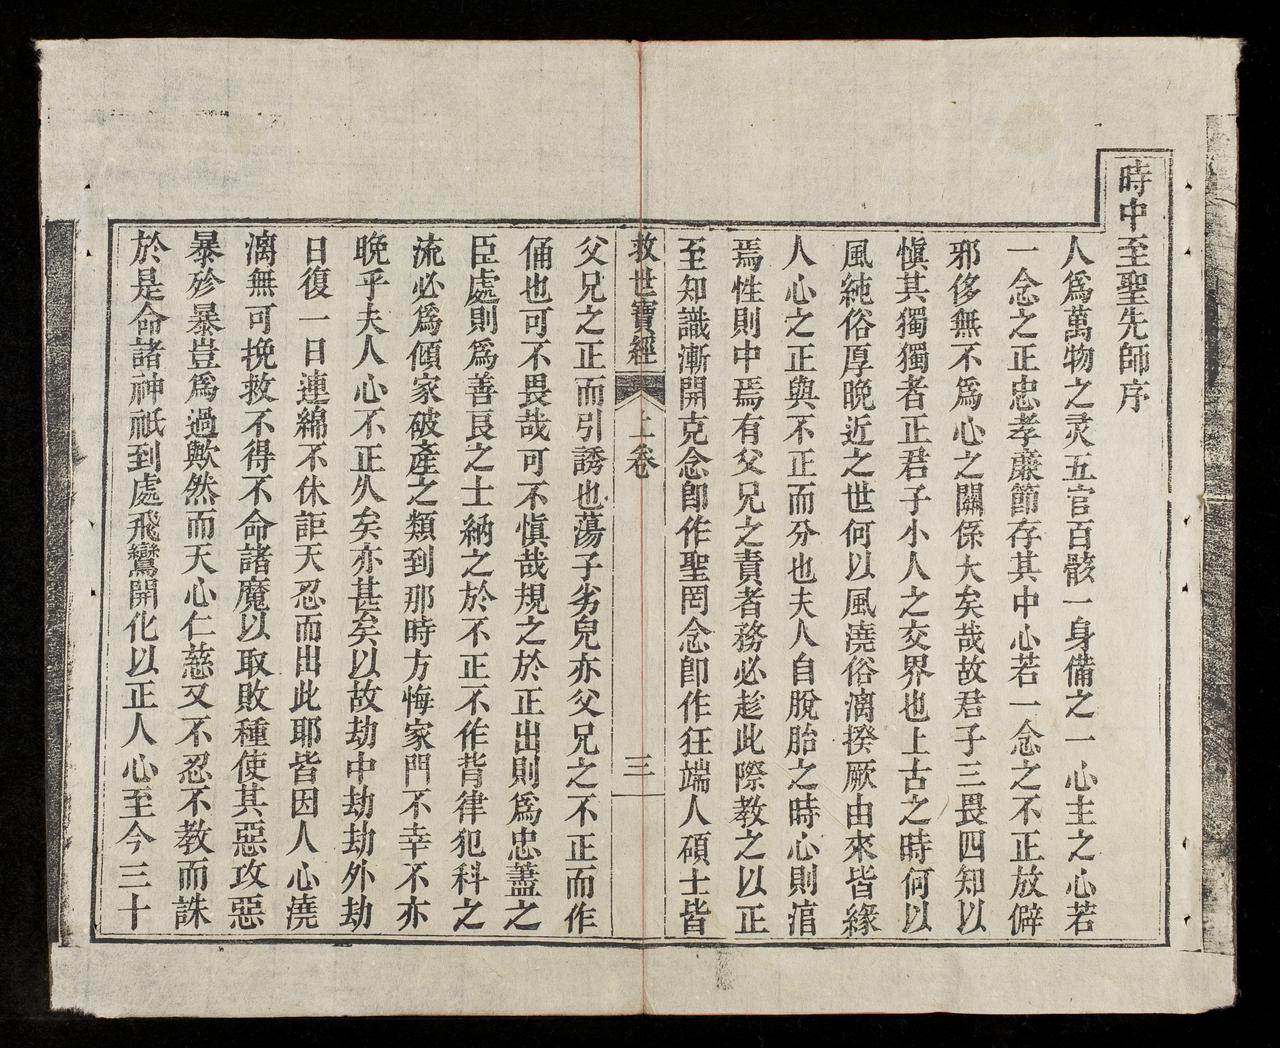 時中至聖先師序
人爲萬物之灵五官百骸一身備之一心主之心若
一念之正忠孝廉節存其中心若一念之不正放僻
邪侈無不爲心之關係大矣哉故君子三畏四知以
愼其獨獨者正君子小人之交界也上古之時何以
風純俗厚晚近之世何以風澆俗漓揆厥由來皆緣
人心之正與不正而分也夫人自脫胎之時心則涫
焉性則中焉有父兄之責者務必趁此際教之以正
至知識漸開克念卽作聖罔念卽作狂端人碩士皆
救世寶經 上卷 三
父兄之正而引誘也蕩子劣兒亦父兄之不正而作
俑也可不畏哉可不愼哉規之於正出則爲忠藎之
臣處則爲善良之士納之於不正不作背律犯科之
流必爲傾家破產之類到那時方悔家門不幸不亦
晚乎夫人心不正久矣亦甚矣以故劫中劫劫外劫
日復一日連綿不休詎天忍而出此耶皆因人心澆
漓無可挽救不得不命諸魔以取敗種使其惡攻惡
暴殄暴豈爲過歟然而天心仁慈又不忍不教而誅
於是命諸神祇到處飛鸞開化以正人心至今三十